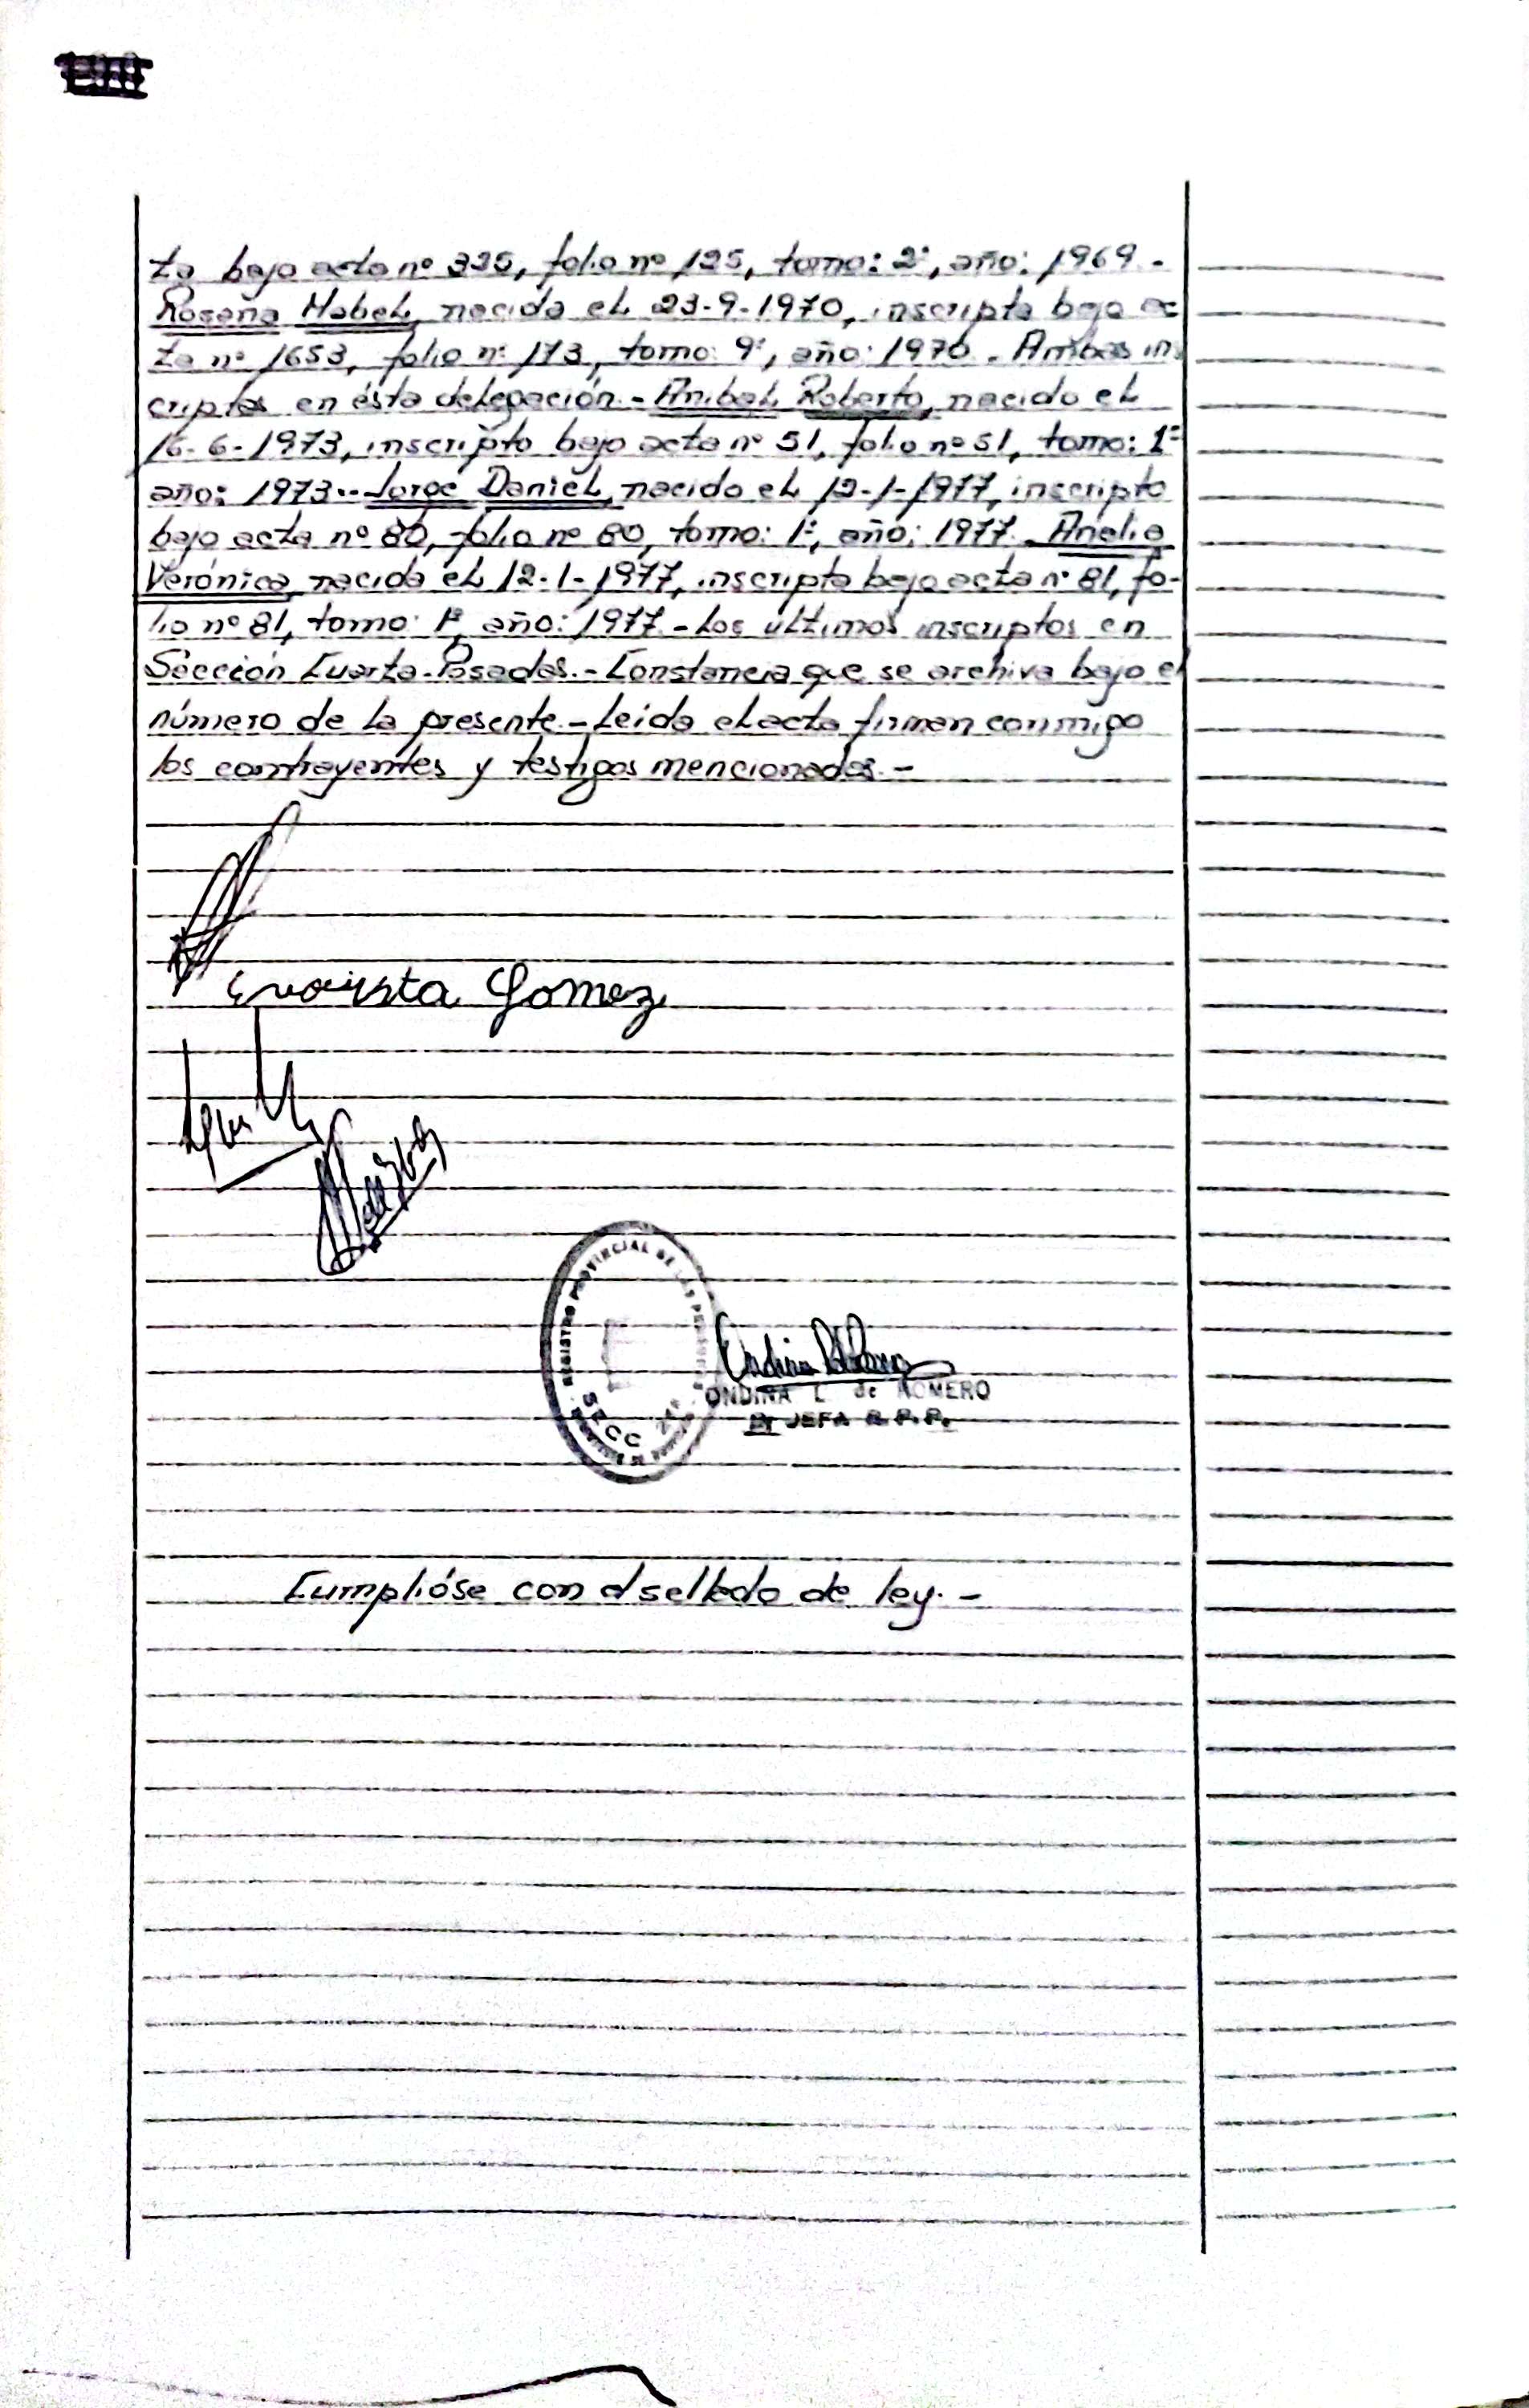 ta bajo acta nº 335, folio nº 125, tomo: 2º, año: 1969.-
Rosana Mabel, nacida el 23-9-1970, inscripta bajo ac
ta nº 1653, folio nº 173, tomo: 9º, año: 1970. Ambas ins
criptas en ésta delegación.- Anibal Roberto, nacido el
16-6-1973, inscripto bajo acta nº 51, folio nº 51, tomo: 1º
año: 1973.- Jorge Daniel, nacido el 12-1-1977, inscripto
bajo acta nº 80, folio nº 80, tomo: 1º, año: 1977. Analia
Verónica, nacida el 12-1-1977, inscripta bajo acta nº 81, fo-
lio nº 81, tomo: 1º, año: 1977.- Los últimos inscriptos en
Sección Cuarta-Posadas.- Constancia que se archiva bajo el
número de la presente.- Leida el acta firman conmigo
los contrayentes y testigos mencionados.-
Evarista Gomez
REGISTRO PROVINCIAL DE LAS PERSONAS
SECC 2da
ONDINA L. de ROMERO
JEFA R.P.P.
Cumplióse con el sellado de ley.-